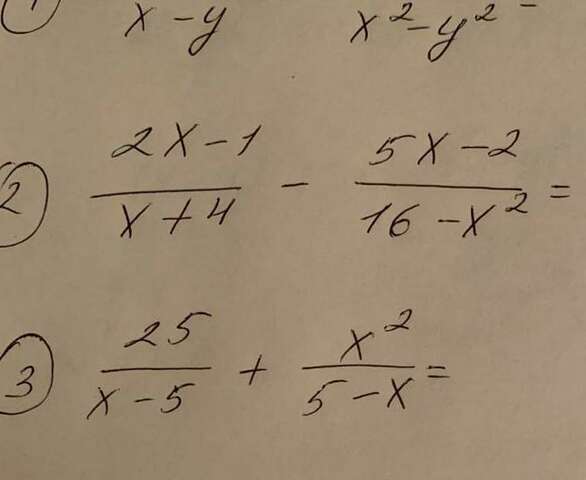 ① x - y x² - y² -
② (2x - 1)/(x + 4) - (5x - 2)/(16 - x²) =
③ 25/(x - 5) + x²/(5 - x) =